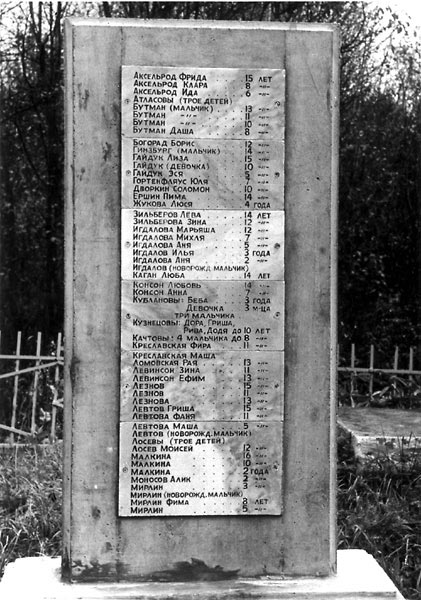 Аксельрод Фрида 15 лет
Аксельрод Клара 8 -"-
Аксельрод Ида 6 -"-
Атласовы (трое детей)
Бутман (мальчик) 13 -"-
Бутман -"- 11 -"-
Бутман -"- 10 -"-
Бутман Даша 8 -"-
Богорад Борис 12 -"-
Гинзбург (мальчик) 14 -"-
Гайдук Лиза 15 -"-
Гайдук (девочка) 10 -"-
Гайдук Эся 5 -"-
Гортенфляус Юля 7 -"-
Дворкин Соломон 10 -"-
Ершин Пима 14 -"-
Жукова Люся 4 года
Зильберов Лева 14 лет
Зильберова Зина 12 -"-
Игдалова Марьяша 12 -"-
Игдалова Михля 7 -"-
Игдалова Аня 5 -"-
Игдалов Илья 3 года
Игдалова Аня 2 -"-
Игдалов (новорожд. мальчик)
Каган Люба 14 лет
Консон Любовь 14 -"-
Консон Анна 7 -"-
Кублановы: Беба 3 года
Девочка 3 м-ца
Три мальчика
Кузнецовы: Дора, Гриша,
Рива, Додя до 10 лет
Качтовы: 4 мальчика до 8 -"-
Креславская Фира 11 -"-
Креславская Маша
Ломовская Рая 13 -"-
Левинсон Зина 11 -"-
Левинсон Ефим 13 -"-
Лезнов 15 -"-
Лезнов 11 -"-
Лезнова 13 -"-
Левтов Гриша 15 -"-
Левтова Фаня 11 -"-
Левтова Маша 5 -"-
Левтов (новорожд. мальчик)
Лосевы (трое детей)
Лосев Моисей 12 -"-
Малкина 16 -"-
Малкина 10 -"-
Малкина 2 года
Моносов Алик 2 -"-
Мирлин 3 -"-
Мирлин (новорожд. мальчик)
Мирлин Фима 8 лет
Мирлин 5 -"-